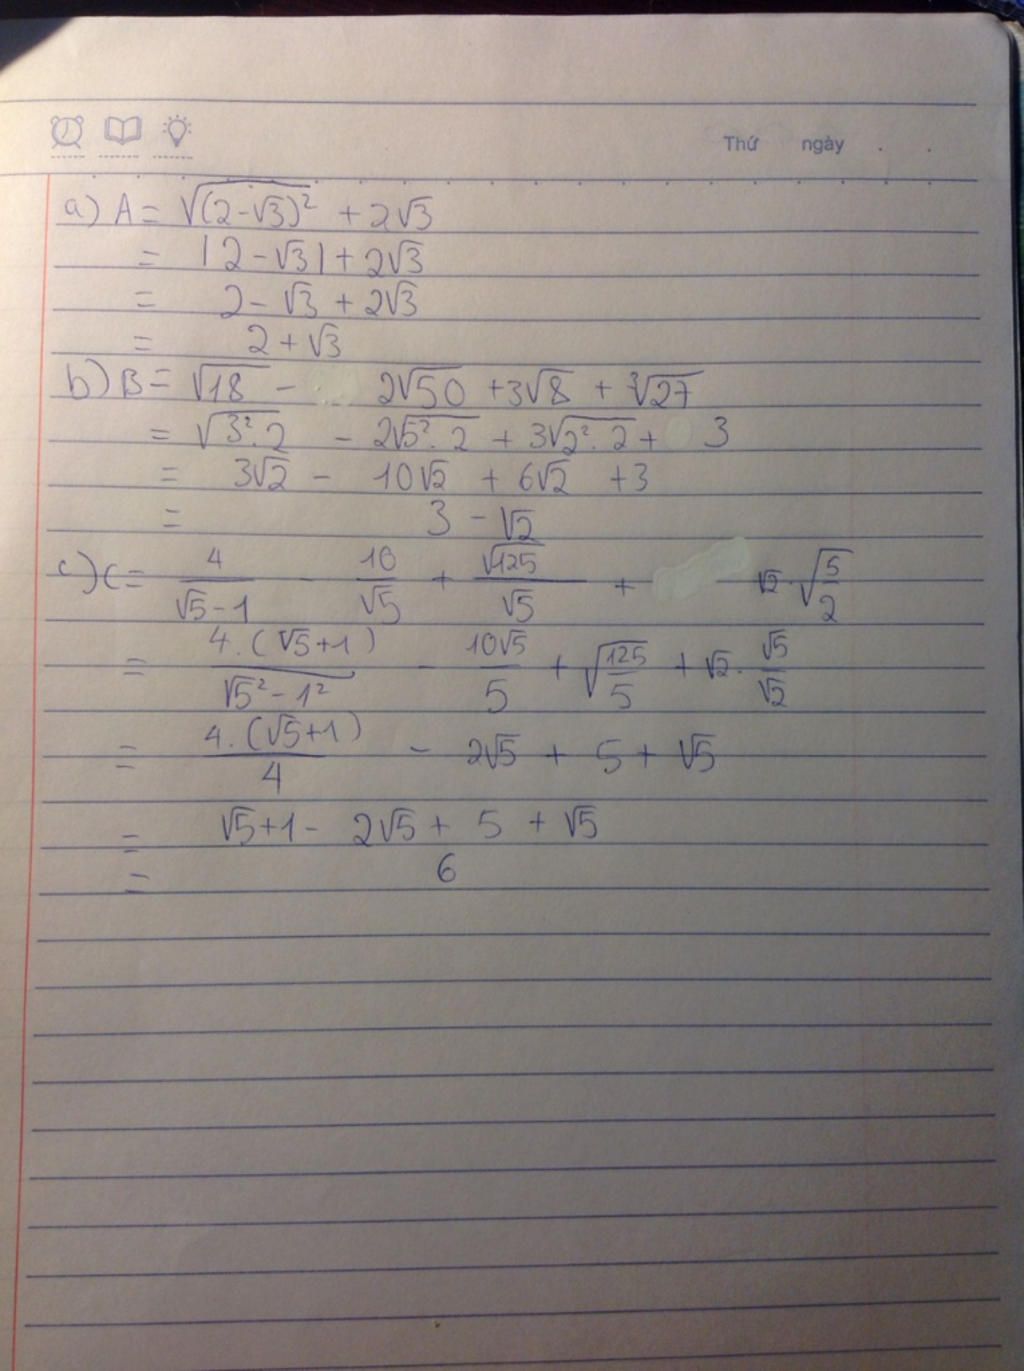 Thứ ngày . .
a) A = √(2-√3)² + 2√3
= |2-√3| + 2√3
= 2 - √3 + 2√3
= 2 + √3
b) B = √18 - 2√50 + 3√8 + ³√27
= √3².2 - 2√5².2 + 3√2².2 + 3
= 3√2 - 10√2 + 6√2 + 3
= 3 - √2
c) C = 4/(√5-1) - 10/√5 + √125/√5 + √2.√(5/2)
= 4.(√5+1)/(√5²-1²) - 10√5/5 + √(125/5) + √2.√5/√2
= 4.(√5+1)/4 - 2√5 + 5 + √5
= √5+1 - 2√5 + 5 + √5
= 6